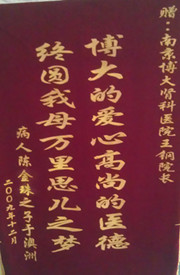 赠：南京博大肾科医院王钢院长
博大的爱心高尚的医德
终圆我母万里思儿之梦
病人陈金珠之子于澳洲
二〇〇九年十二月